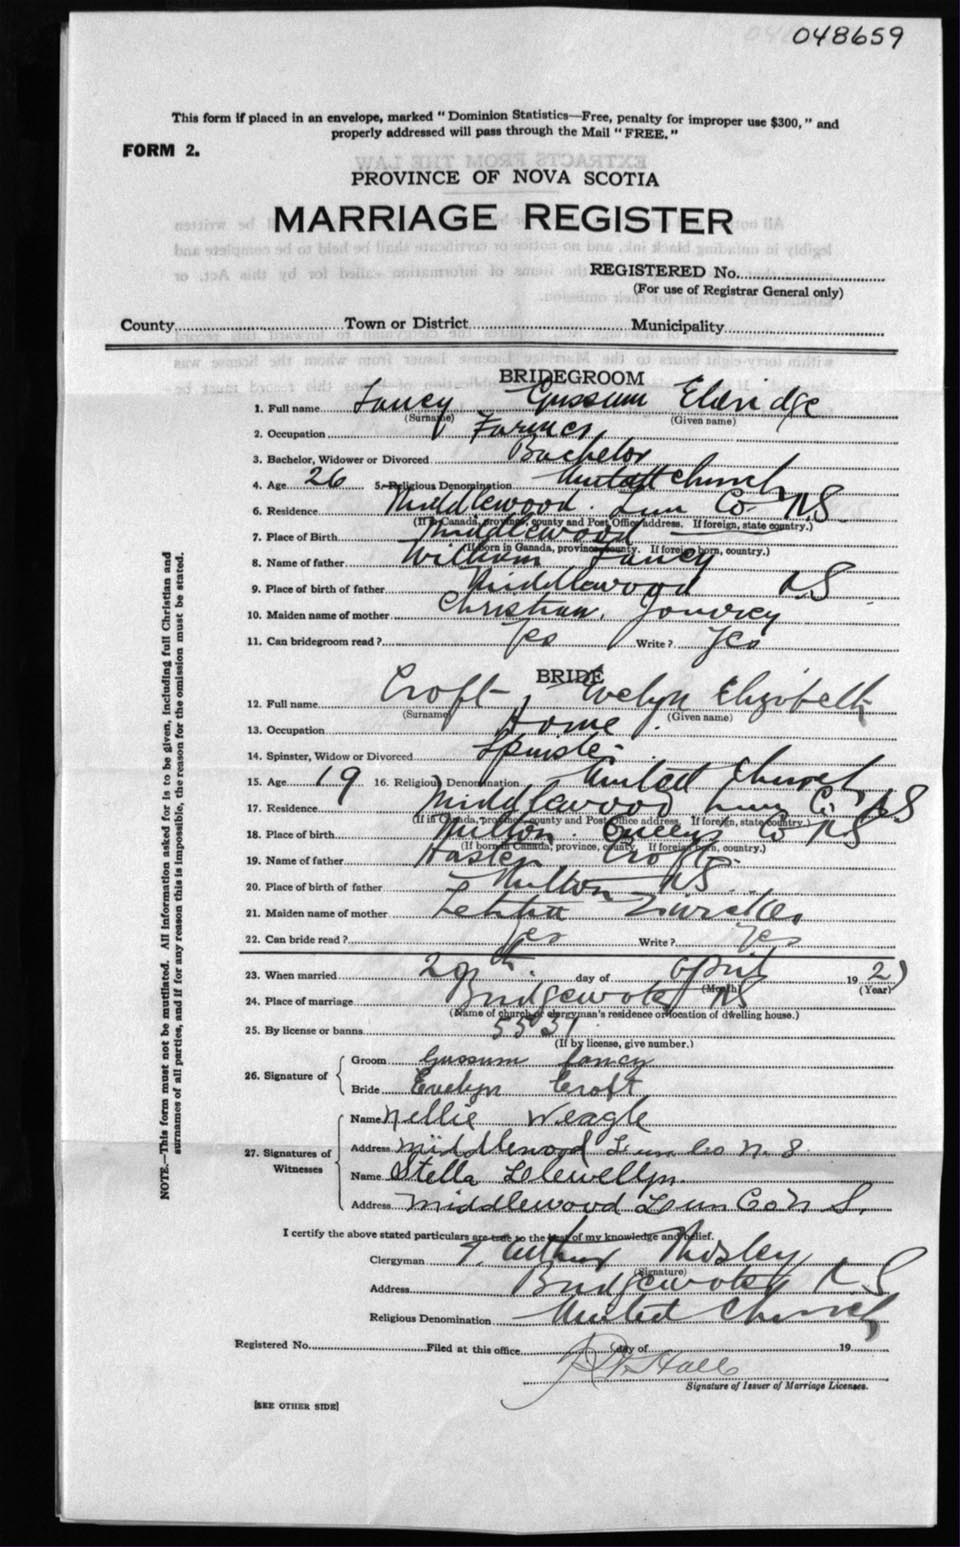 048659
This form if placed in an envelope, marked "Dominion Statistics—Free, penalty for improper use $300," and
properly addressed will pass through the Mail "FREE."
FORM 2.
PROVINCE OF NOVA SCOTIA
MARRIAGE REGISTER
REGISTERED No.
(For use of Registrar General only)
County Town or District Municipality
BRIDEGROOM
1. Full name Fancy Gussum Eldridge
(Surname) (Given name)
2. Occupation Farmer
3. Bachelor, Widower or Divorced Bachelor
4. Age 26 5. Religious Denomination United Church
6. Residence Middlewood. Lun Co NS
(If in Canada, province, county and Post Office address. If foreign, state country.)
7. Place of Birth Middlewood
(If born in Canada, province, county. If foreign born, country.)
8. Name of father William Fancy
9. Place of birth of father Middlewood NS
10. Maiden name of mother Christian
11. Can bridegroom read? Yes Write? Yes
BRIDE
12. Full name Croft Evelyn Elizabeth
(Surname) (Given name)
13. Occupation Home
14. Spinster, Widow or Divorced Spinster
15. Age 19 16. Religious Denomination United Church
17. Residence Middlewood Lun Co NS
(If in Canada, province, county and Post Office address. If foreign, state country.)
18. Place of birth Milton. Queens Co NS
(If born in Canada, province, county. If foreign born, country.)
19. Name of father Croft
20. Place of birth of father Milton NS
21. Maiden name of mother
22. Can bride read? Yes Write? Yes
23. When married 29th day of April 19 27
(Month) (Year)
24. Place of marriage Bridgewater NS
(Name of church or clergyman's residence or location of dwelling house.)
25. By license or banns 5531
(If by license, give number.)
26. Signature of
Groom Gussum Fancy
Bride Evelyn Croft
27. Signatures of Witnesses
Name Nellie Weagle
Address Middlewood Lun Co N. S.
Name Stella Llewellyn.
Address Middlewood Lun Co N S.
I certify the above stated particulars are true to the best of my knowledge and belief.
Clergyman Arthur
(Signature)
Address Bridgewater NS
Religious Denomination United Church
Registered No. Filed at this office day of 19
Hall
Signature of Issuer of Marriage Licenses.
[SEE OTHER SIDE]
NOTE.—This form must not be mutilated. All information asked for is to be given, including full Christian and
surnames of all parties, and if for any reason this is impossible, the reason for the omission must be stated.